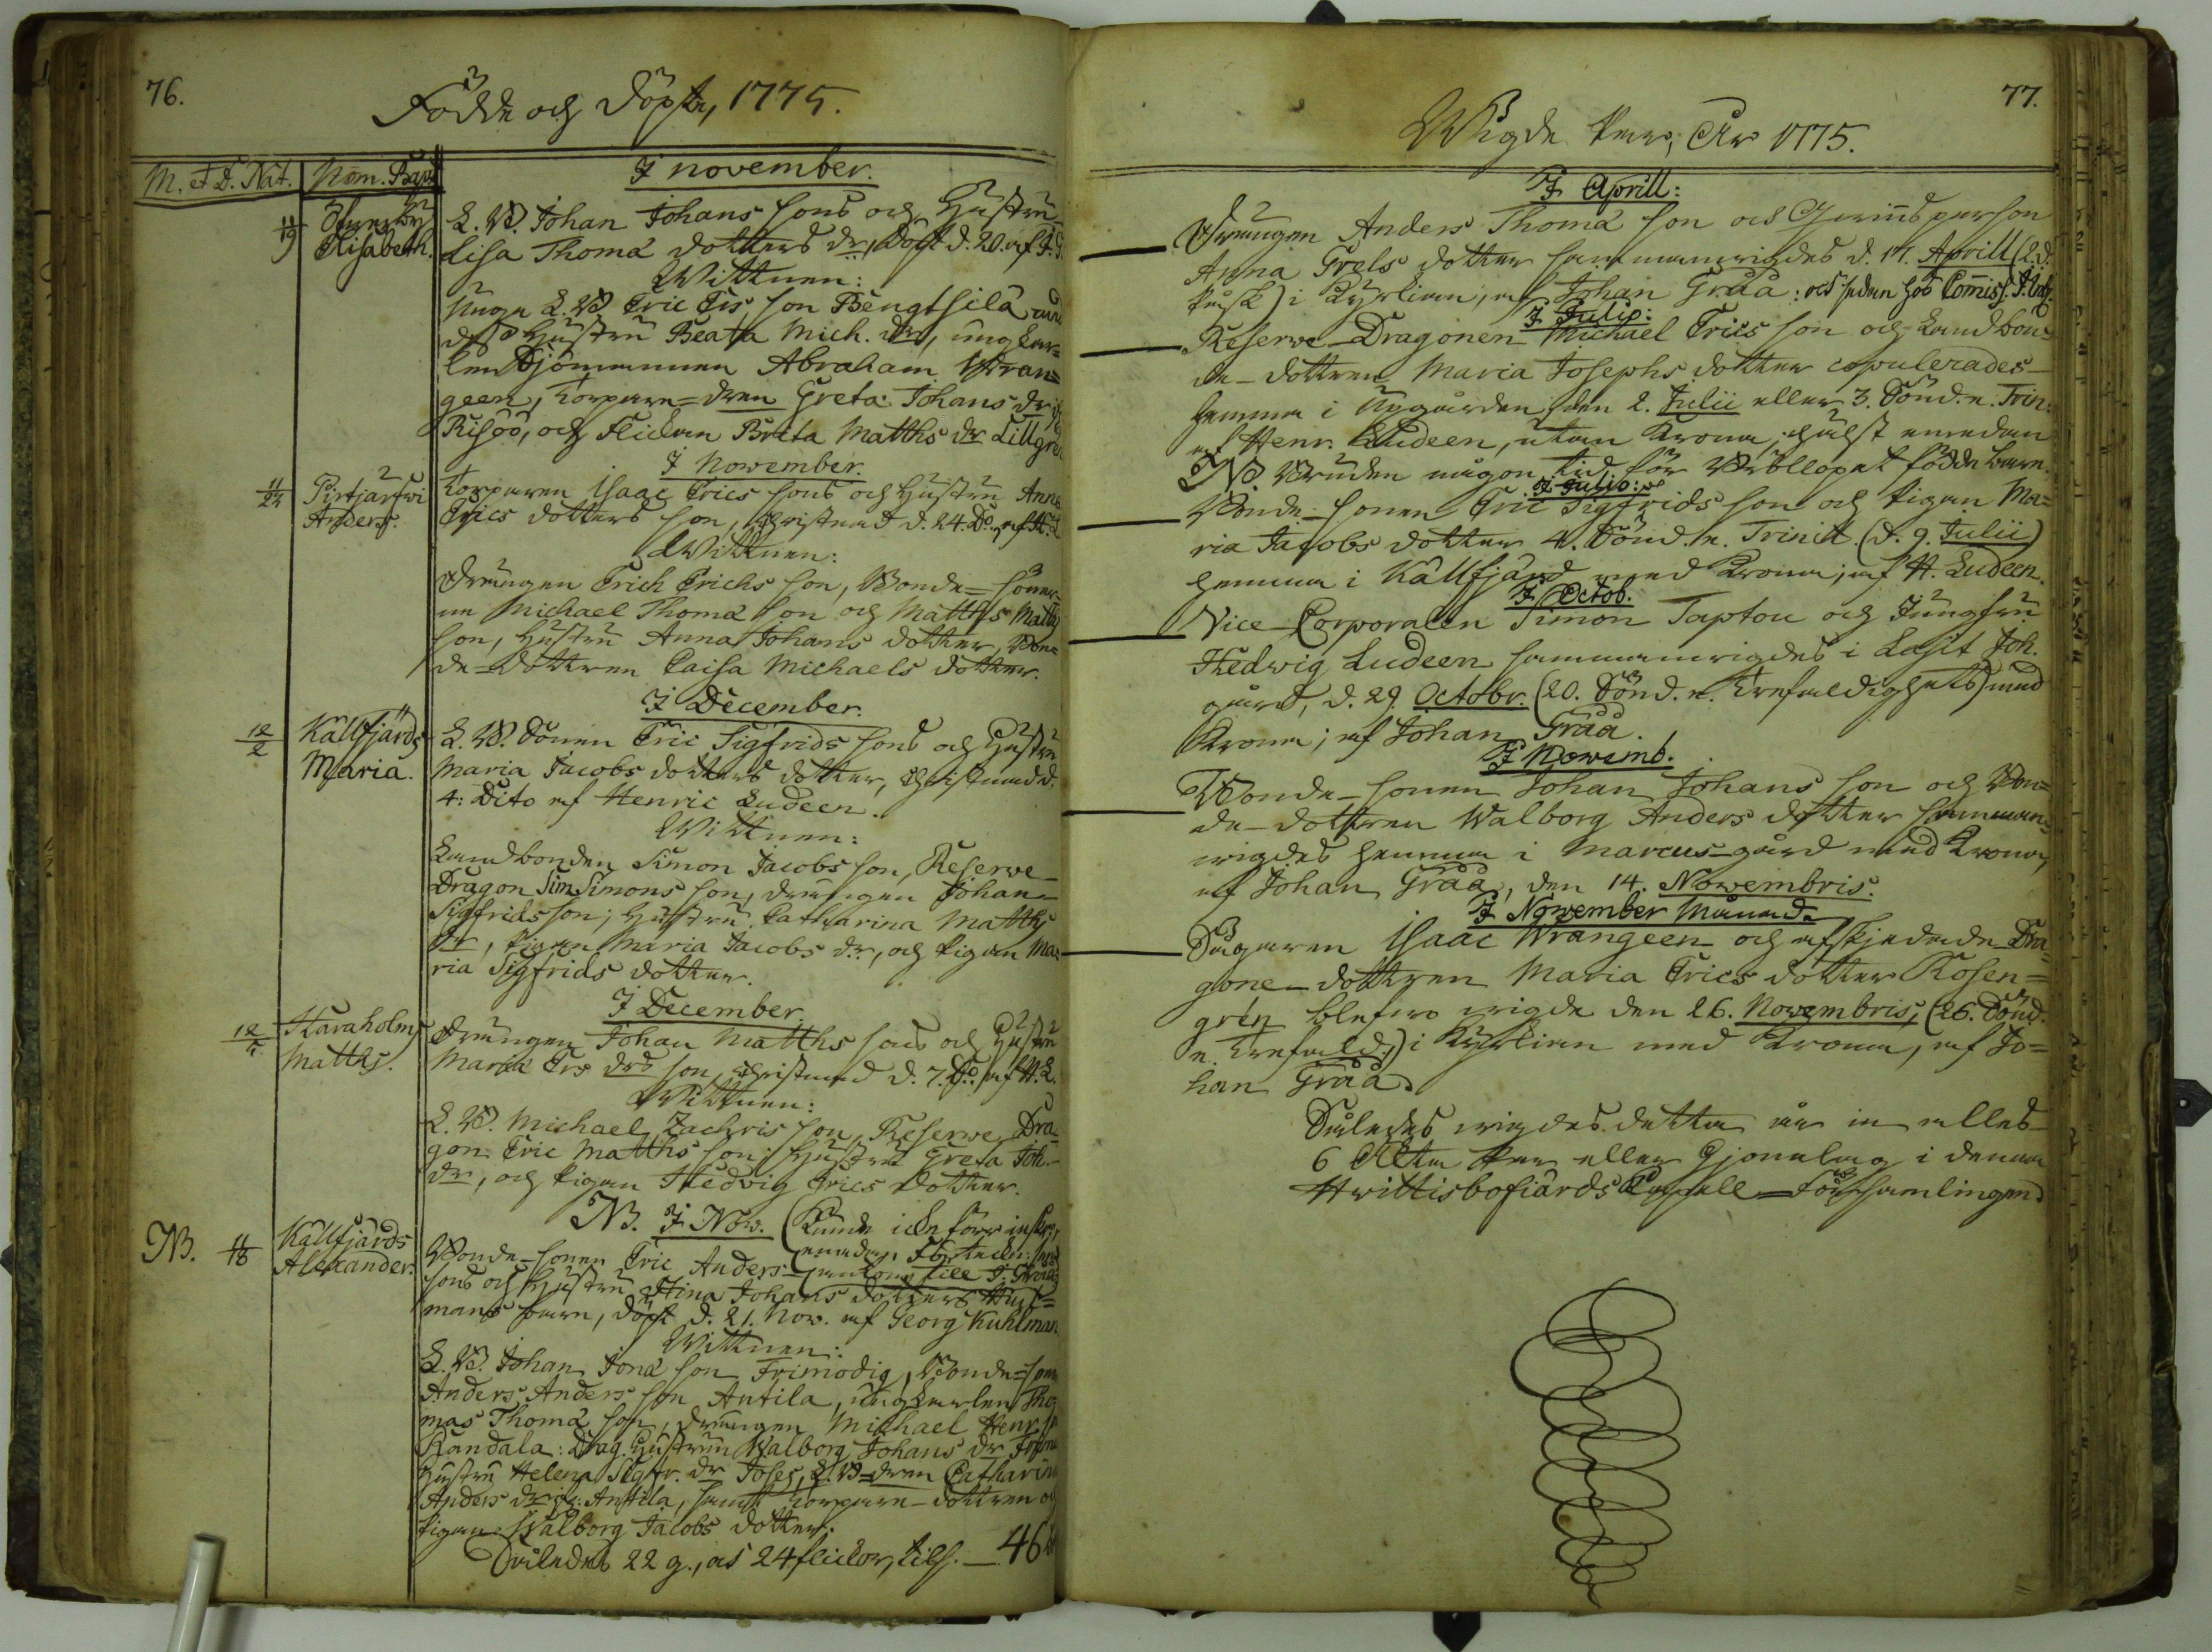 76.
Födde och Döpte, 1775.
M. et D. Nat. Nom. Bapt.
I november.
11/19 Elisabeth.
L. B. Johan Johans sons och Hustru
Lisa Thomæ dotters dr, döpt d. 20. af J. G.
Wittnen:
Unga L. B. Eric Ers son Bengtsilä
dess Hustru Beata Mich. dr, ungkar-
len Abraham Wran=
geen, Torpare=dren Greta Johans dr
Risöö, och Flickan Brita Matths dr Lillgren
I November.
11/24 Pirtjärfwi Anders.
Torparen Isaac Erics sons och Hustru Anna
Erics dotters son, Christnad d. 24. Do, af H. L.
Wittnen:
Drängen Erich Erichs son, Bonde=söner-
ne Michael Thomæ son och Matths Matths
son, Hustru Anna Johans dotter, Bon=
de=dottren Caisa Michaels dotter.
I December.
12/2 Källfjärds Maria.
L. B. Sonen Eric Sigfrids sons och Hustru
Maria Jacobs dotters dotter, Christnad d.
4: Dito af Henric Ludeen.
Wittnen:
Landbonden Simon Jacobs son, Reserve
Dragon Sim Simons son, drängen Johan
Sigfrids son; Hustru Catharina Matths
dr, pigan Maria Jacobs dr, och pigan Ma=
ria Sigfrids dotter.
I December.
12/7 Haraholms Matths.
Drängen Johan Matths sons och Hustru
Maria Ers drs son, Christnad d. 7. Do, af H. L.
Wittnen:
L. B. Michael Zachris son, Reserve Dra
gon Eric Matths son; Hustru Greta Joh.
dr, och pigan Hedvig Erics dotter.
NB. I Nov. (Kunde icke förr
NB. 11/18 Källfjärds Alexander.
Bonde=sonen Eric Anders=
sons och Hustru Stina Johans dotters
mans barn, döpt d. 21. Nov. af Georg Kuhlman
Wittnen:
L. B. Johan Jonæ son Frimodig, Bonde=son
Anders Anders son Antila, ungkarlen Tho
mas Thomæ son, drängen Michael Henr.
Kandala: Drag. Hustrun Walborg Johans dr
Hustru Helena Sigfr. dr Joses, L. B=dren Catharina
Anders dr Antila, samt Torpare=dottren och
pigan Walborg Jacobs dotter.
Således 22 g., och 24 flickor, tills. — 46
77.
Wigde Par, År 1775.
I Aprill:
Drängen Anders Thomæ son och Qwinsperson
Anna Grels dotter sammanvigdes d. 17. Aprill (2. d.
Påsk) i Kyrkian, af Johan Gråå:
I Julio:
Reserve-Dragonen Michael Erics son och Landbon=
de-dottren Maria Josephs dotter copulerades
hemma i Nygården den 2. Julii eller 3. Sönd. e. Trin:
af Henr. Ludeen, utan Krona; hälst emedan
NB. Bruden någon tid för Bröllopet födde barn.
I Julio:
Bonde-sonen Eric Sigfrids son och pigan Ma=
ria Jacobs dotter 4. Sönd. e. Trinit. (d. 9. Julii)
hemma i Källfjärd med Krona; af H. Ludeen.
I Octob.
Vice-Corporalen Simon Taptou och Jungfru
Hedwig Ludeen sammanvigdes i Lasit Joh.
gård, d. 29. Octobr. (20. Sönd. e. Trefaldighets) med
Krona; af Johan Gråå.
I Novemb.
Bonde-sonen Johan Johans son och Bon=
de-dottren Walborg Anders dotter samman-
vigdes hemma i Marcus-gård med Krona,
af Johan Gråå, den 14. Novembris.
I November Månad.
Sågaren Isaac Wrangeen och afskjedade Dra=
gone-dottren Maria Erics dotter Rosen=
grén blefwo vigde den 26. Novembris, (26. Sönd.
e. Trefald.) i Kyrkian med Krona, af Jo=
han Gråå.
Således vigdes detta år in alles
6 Äkta Par eller Hjonelag i denna
Hvittisbofjärds Capell=Församlingen.